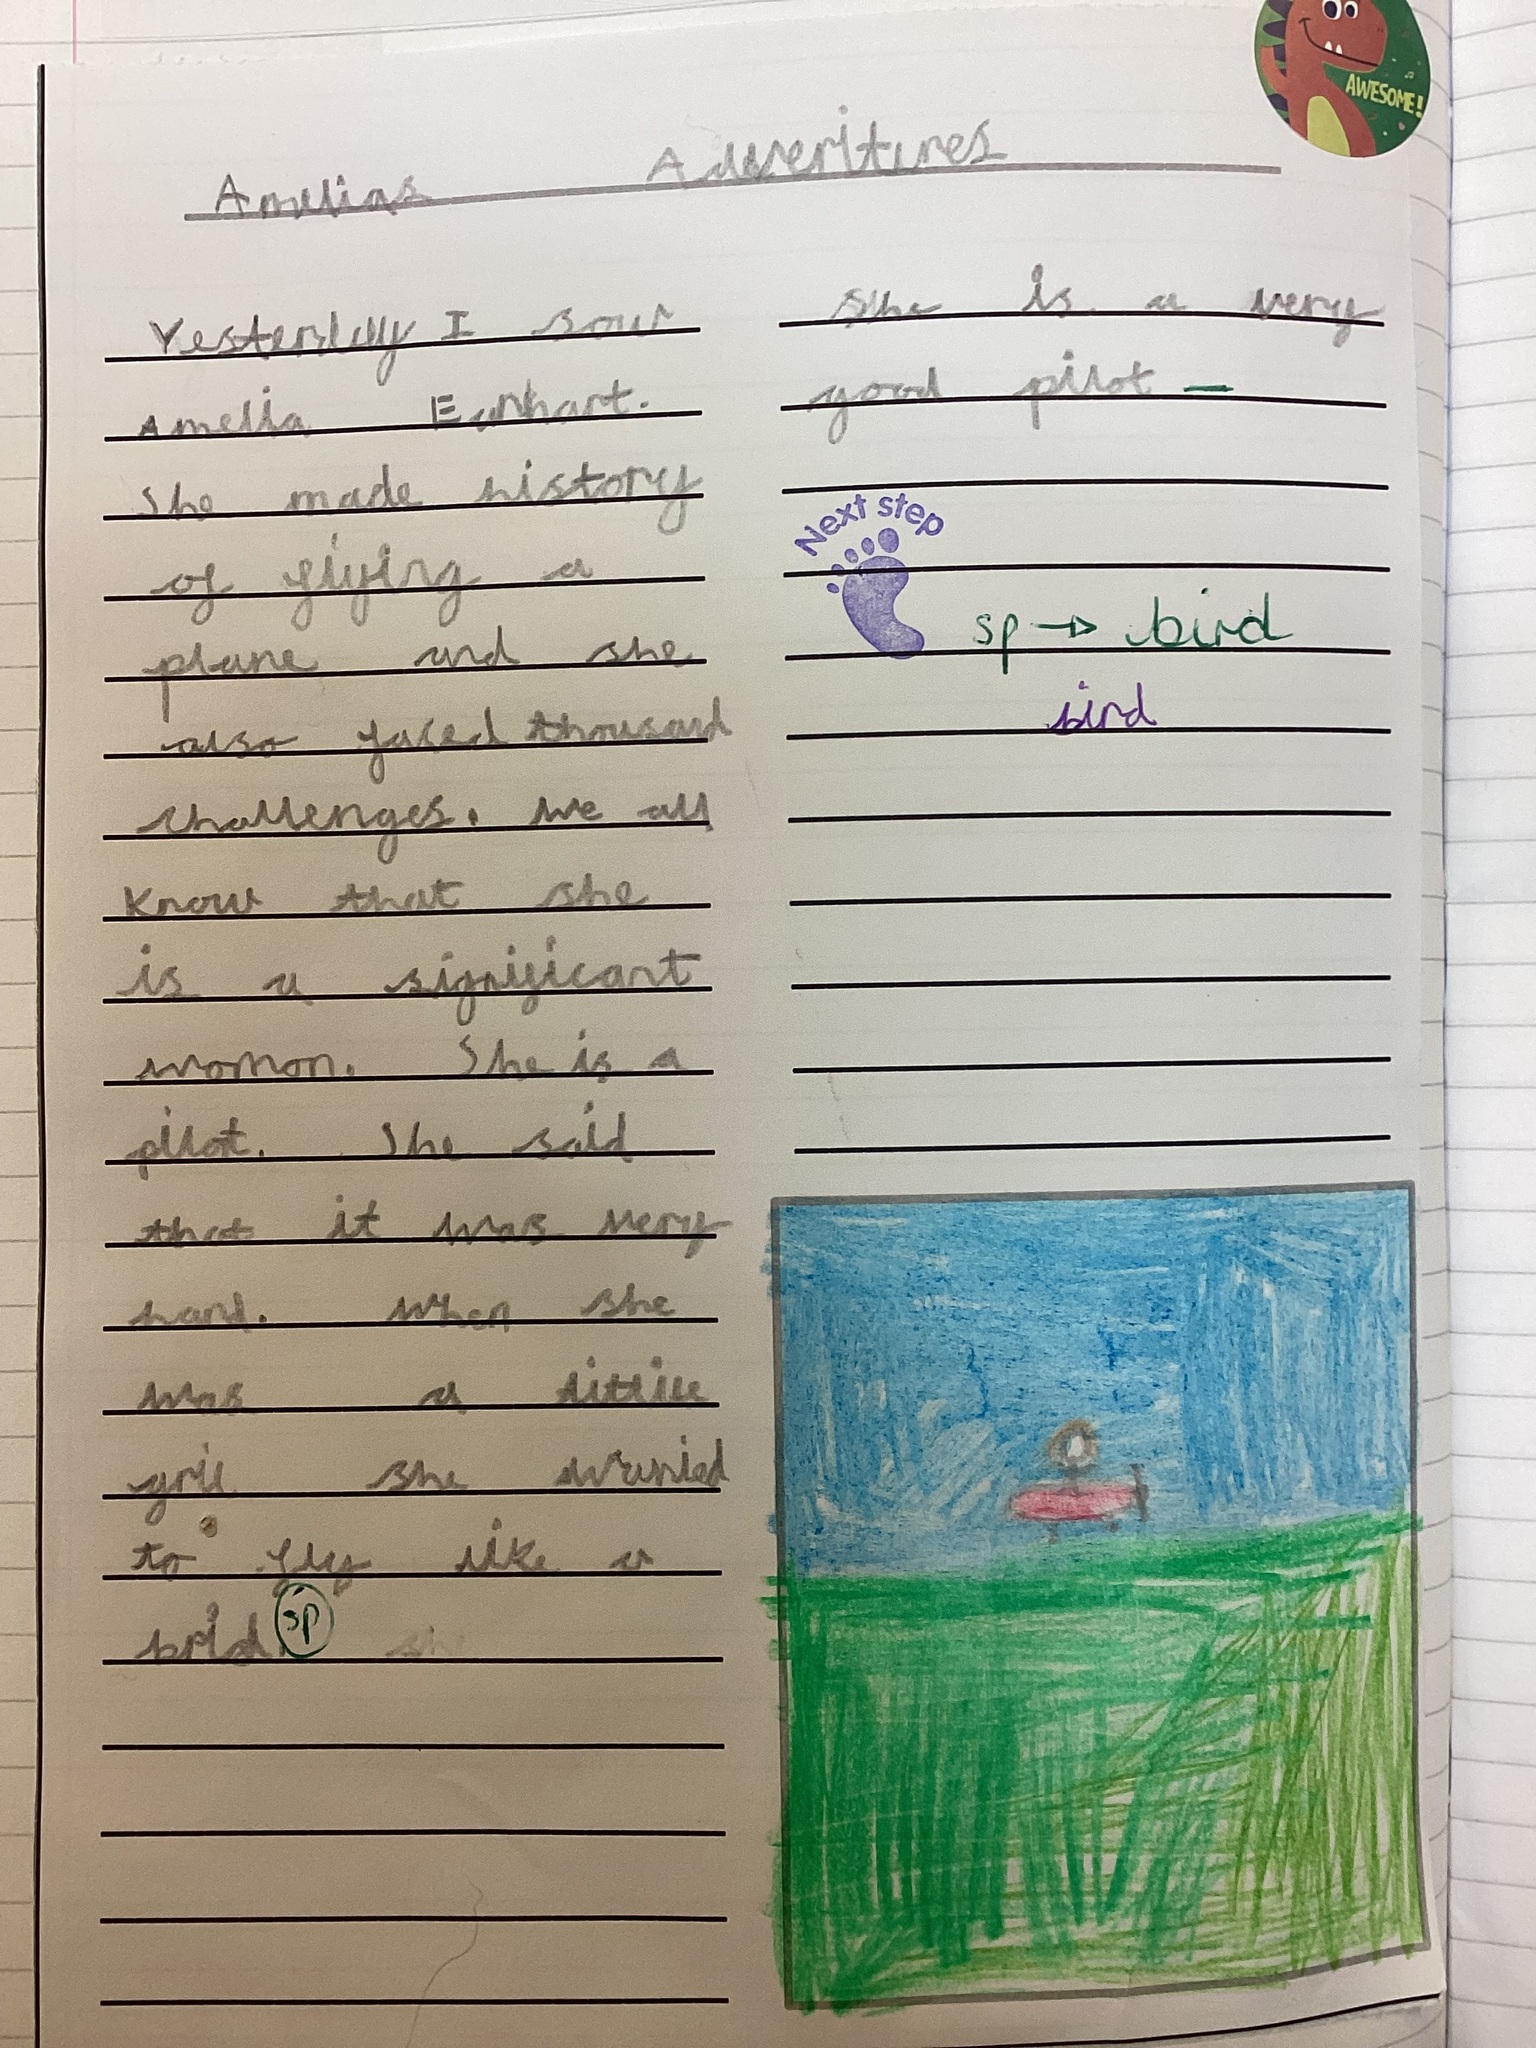 AWESOME!
Amelias Adveritures
Yesterday I sour
Amelia Earhart.
She made history
of flying a
plane and she
also faced thousand
challenges. We all
know that she
is a significant
womon. She is a
pilot. She said
that it was very
hard. when she
was a little
gril she wanted
to fly like a
brid. sp
sh
She is a very
good pilot
Next step
sp → bird
bird